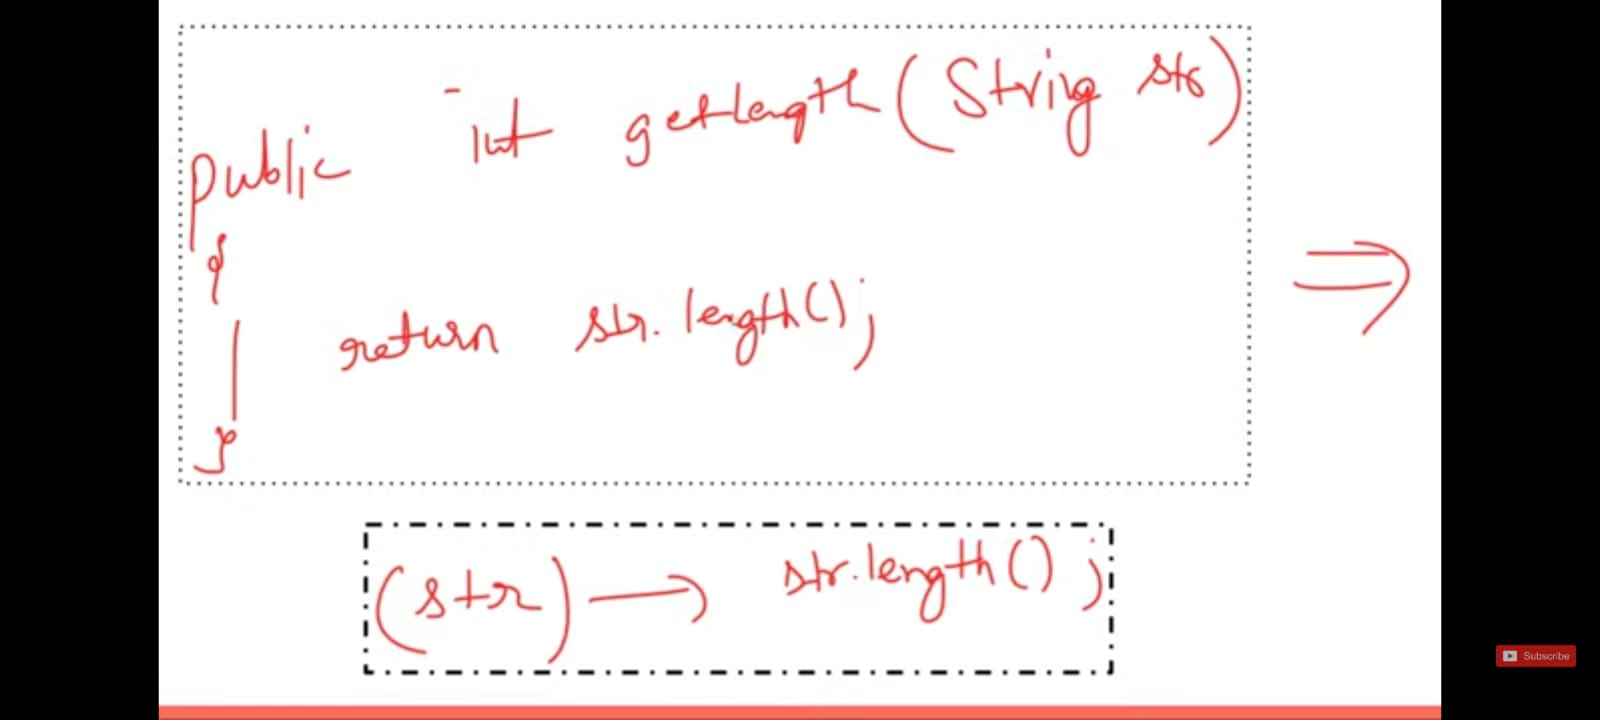 public int getlength(String str)
{
return str.length();
}
⇒
(str) → str.length();
Subscribe